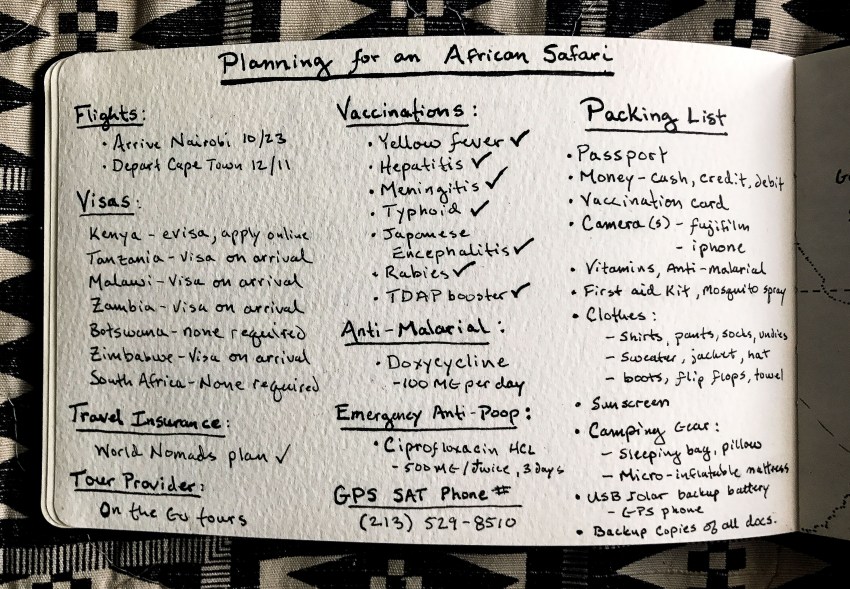 Planning for an African Safari
Flights:
• Arrive Nairobi 10/23
• Depart Cape Town 12/11
Visas:
Kenya - evisa, apply online
Tanzania - Visa on arrival
Malawi - Visa on arrival
Zambia - Visa on arrival
Botswana - none required
Zimbabwe - Visa on arrival
South Africa - None required
Travel Insurance:
World Nomads plan ✓
Tour Provider:
On the Go tours
Vaccinations:
• Yellow fever ✓
• Hepatitis ✓
• Meningitis ✓
• Typhoid ✓
• Japanese
Encephalitis ✓
• Rabies ✓
• TDAP booster ✓
Anti-Malarial:
• Doxycycline
- 100 MG per day
Emergency Anti-Poop:
• Ciprofloxacin HCL
- 500MG/twice, 3 days
GPS SAT Phone #
(213) 529-8510
Packing List
• Passport
• Money - cash, credit, debit
• Vaccination card
• Camera(s) - fujifilm
- iphone
• Vitamins, Anti-malarial
• First aid Kit, Mosquito spray
• Clothes:
- Shirts, pants, socks, undies
- Sweater, jacket, hat
- boots, flip flops, towel
• Sunscreen
• Camping Gear:
- Sleeping bag, pillow
- Micro-inflatable mattress
• USB Solar backup battery
- GPS phone
• Backup copies of all docs.